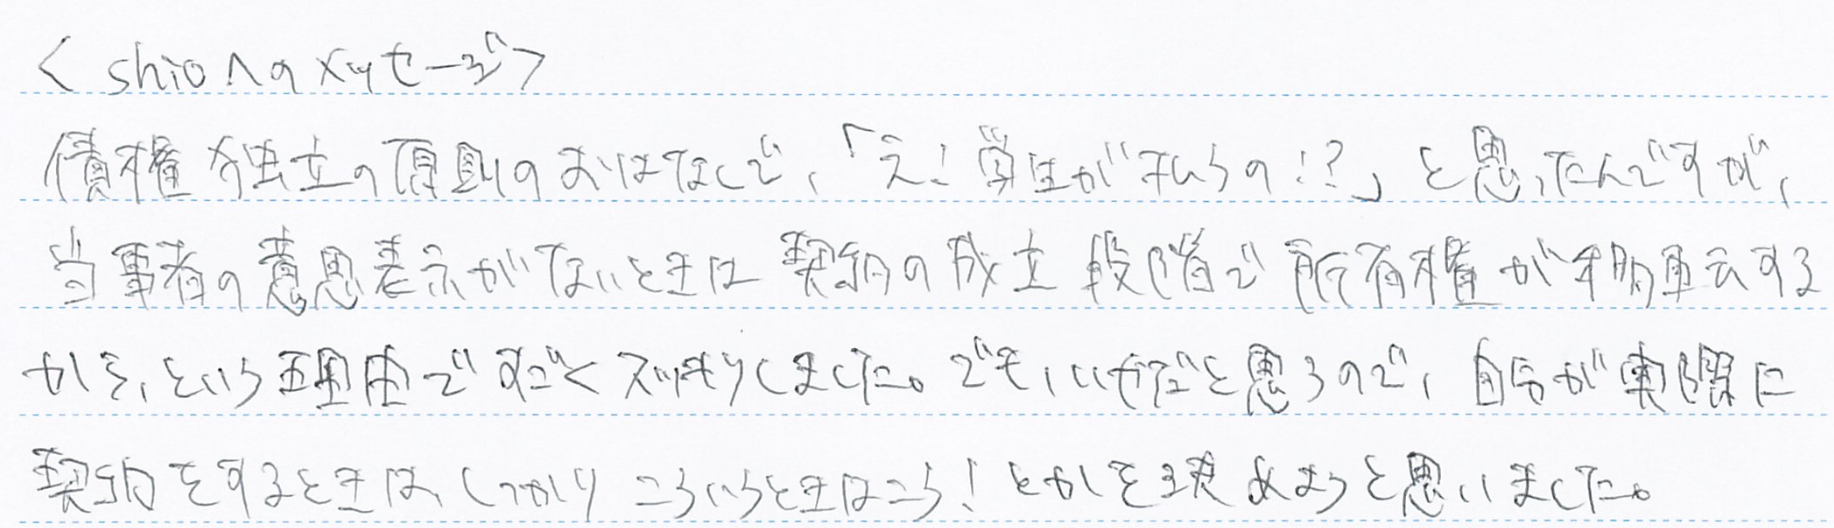 <shioへのメッセージ>
債権独立の原則のおはなしで、「え！学生が払うの！？」と思ったんですが、
当事者の意思表示がないときは契約の成立段階で所有権が移転する
から、という理由ですごくスッキリしました。でも、いやだと思うので、自分が実際に
契約をするときは、しっかりこういうときはこう！とかを決めようと思いました。